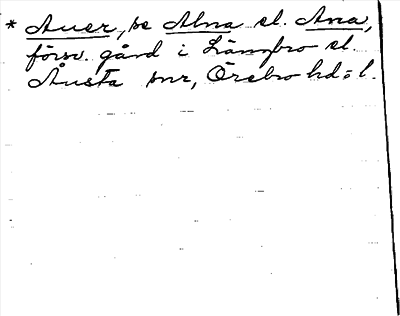 * Auer, se Alna el. Ana,
försv. gård i Längbro el.
Ånsta snr, Örebro hd o l.